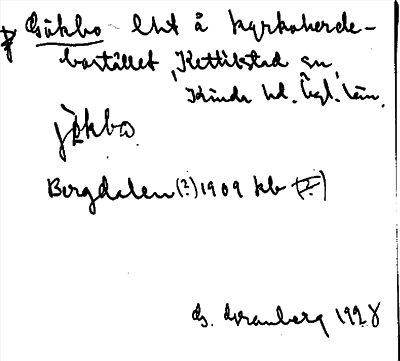 Gökbo lht å kyrkoherde-
bostället, Kettilstad sn,
Kinda hd. Ögl. län.
jökbo
Bergdalen (?) 1909 kb (?)
G. Granberg 1928